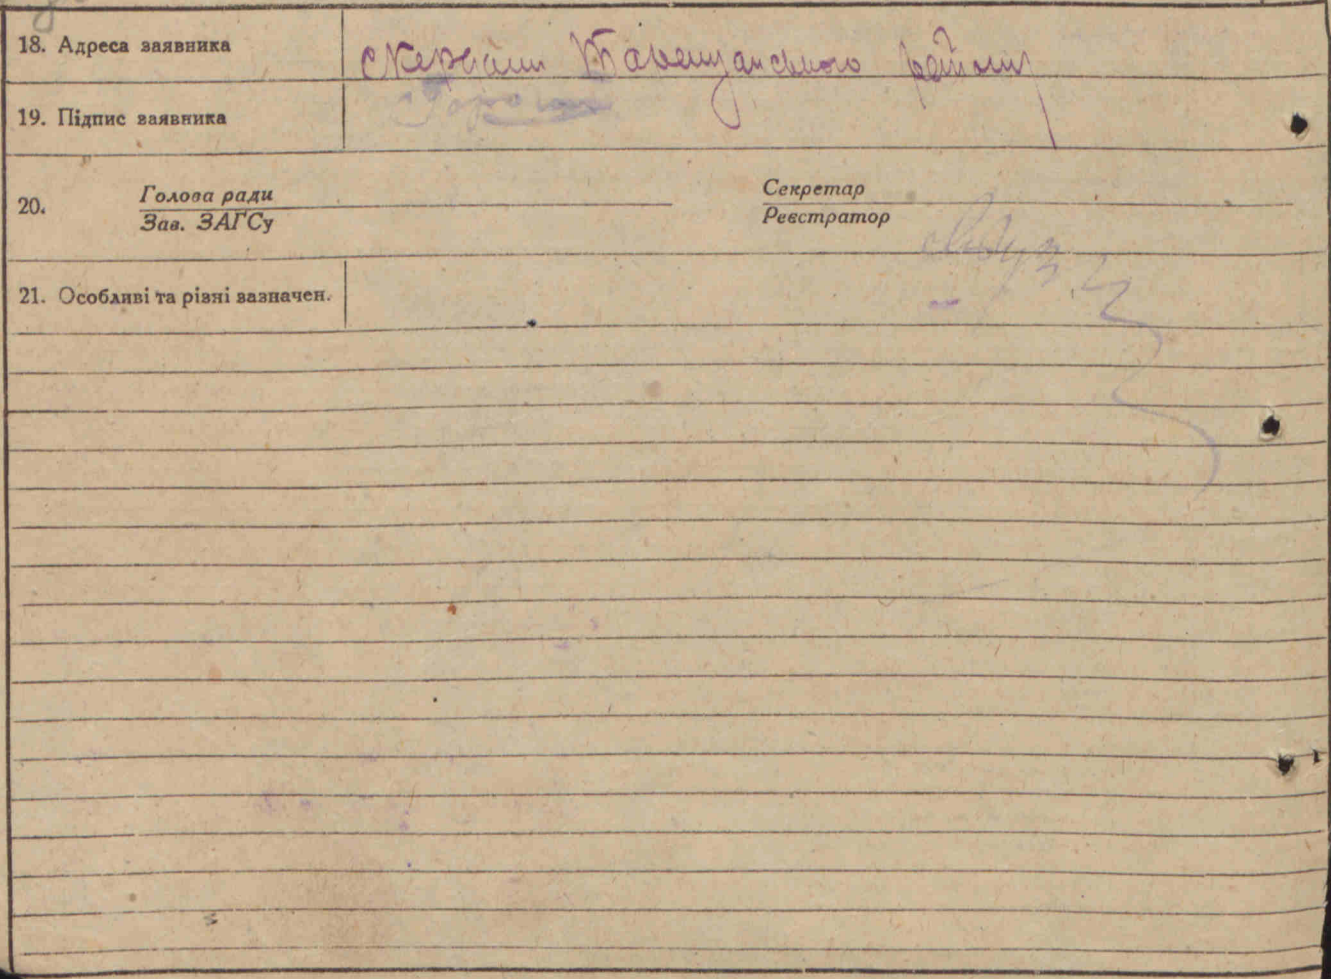 18. Адреса заявника
Таращанського району
19. Підпис заявника
20.
Голова ради
Зав. ЗАГСу
Секретар
Реєстратор
21. Особливі та різні зазначен.